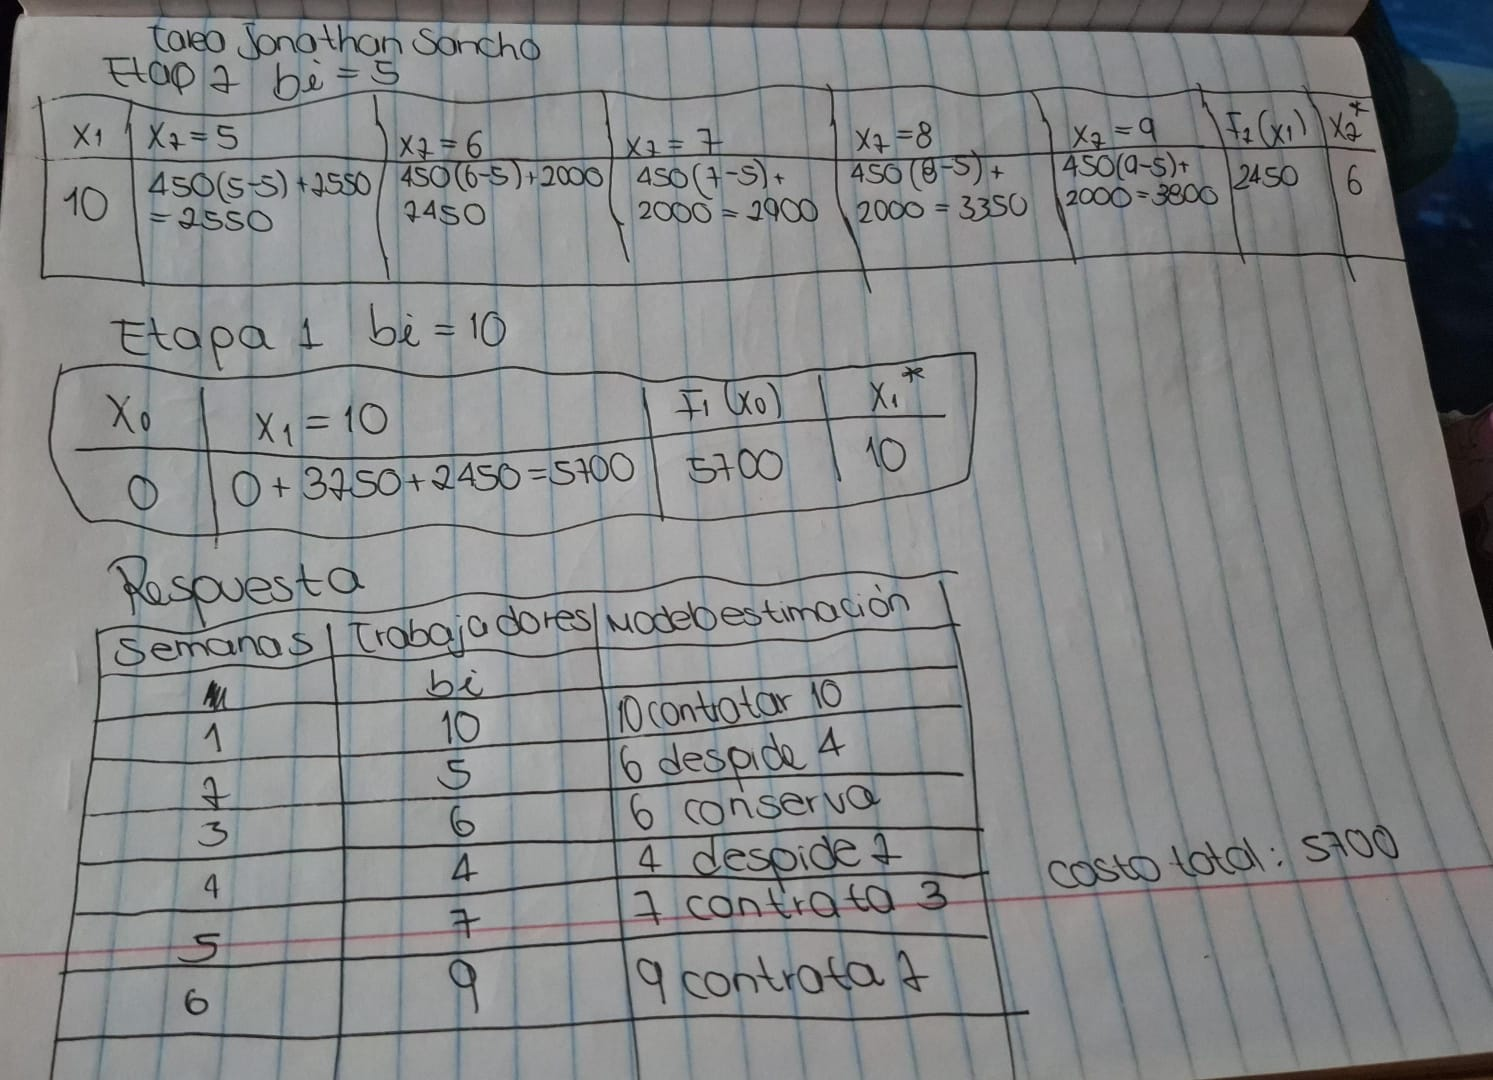 tarea Jonathan Sancho
Etap 2 bi = 5
X1 X2 = 5 X2 = 6 X2 = 7 X2 = 8 X2 = 9 F2(X1) X2*
10 450(5-5) + 2550 = 2550 450(6-5) + 2000 2450 450(7-5) + 2000 = 2900 450(8-5) + 2000 = 3350 450(9-5) + 2000 = 3800 2450 6
Etapa 1 bi = 10
X0 X1 = 10 F1(X0) X1*
0 0 + 3250 + 2450 = 5700 5700 10
Respuesta
Semanas Trabajadores Modelo estimación
bi
1 10 10 contratar 10
2 5 6 despide 4
3 6 6 conserva
4 4 4 despide 2
5 7 7 contrata 3
6 9 9 contrata 2
costo total: 5700